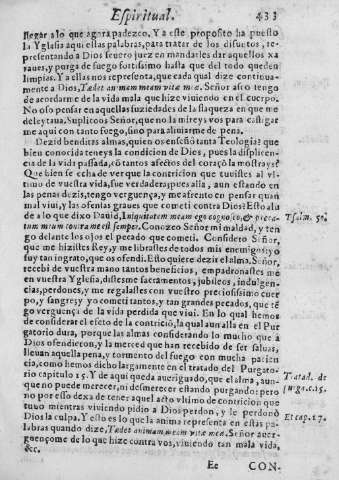 Espiritual. 433
llegar a lo que agora padezco. Y a este proposito ha puesto
la Yglesia aqui estas palabras, para tratar de los difuntos, re-
presentando a Dios seuero juez en mandarles dar aquellos xa
raues, y purga de fuego fortissimo hasta que del todo queden
limpias. Y a ellas nos representa, que cada qual dize continua-
mente a Dios, Tædet animam meam vitæ meæ. Señor asco tengo
de acordarme de la vida mala que hize viuiendo en el cuerpo.
No oso pensar en aquellas suziedades de la flaqueza en que me
deleytaua. Suplicoos Señor, que no la mireys vos para castigar
me aqui con tanto fuego, sino para aliuiarme de pena.
Dezid benditas almas, quien os enseñó tanta Teologia? que
bien conocida teneys la condicion de Dios, pues la displicen-
cia de la vida passada, cõ tantos afectos del coraçõ la mostrays?
Que bien se echa de ver que la contricion que tuuistes al vl-
timo de vuestra vida, fue verdadera, pues alla, aun estando en
las penas dezis, tengo verguença, y me afrento en pensar quan
mal viui, y las ofensas graues que cometi contra Dios: Esto alu
de a lo que dixo Dauid, Iniquitatem meam ego cognosco, & pecca-
tum meum contra me est semper. Conozco Señor mi maldad, y ten
go delante los ojos el pecado que cometi. Considero Señor,
que me hizistes Rey, y me librastes de todos mis enemigos: yo
fuy tan ingrato, que os ofendi. Esto quiere dezir el alma. Señor,
recebi de vuestra mano tantos beneficios, empadronastes me
en vuestra Yglesia, distesme sacramentos, jubileos, indulgen-
cias, perdones, y me regalastes con vuestro preciosissimo cuer
po, y sangre, y yo cometi tantos, y tan grandes pecados, que tē
go verguença de la vida perdida que viui. En lo qual hemos
de considerar el efeto de la contriciõ, la qual aun alla en el Pur
gatorio dura, porque las almas considerando lo mucho que a
Dios ofendieron, y la merced que han recebido de ser saluas,
lleuan aquella pena, y tormento del fuego con mucha pacien
cia, como hemos dicho largamente en el tratado del Purgato-
rio capitulo 15. Y de aqui queda aueriguado, que el alma, aun-
que no puede merecer, ni desmerecer estando purgando: pero
no por esso dexa de tener aquel acto vltimo de contricion que
tuuo mientras viuiendo pidio a Dios perdon, y le perdonò
Dios la culpa. Y esto es lo que la anima representa en estas pa-
labras quando dize, Tædet animam meam vitæ meæ. Señor auer-
guençome de lo que hize contra vos, viuiendo tan mala vida,
&c.
Psalm. 50.
Tratad. de
Purga. c. 15.
Et cap. 17.
Ee CON-